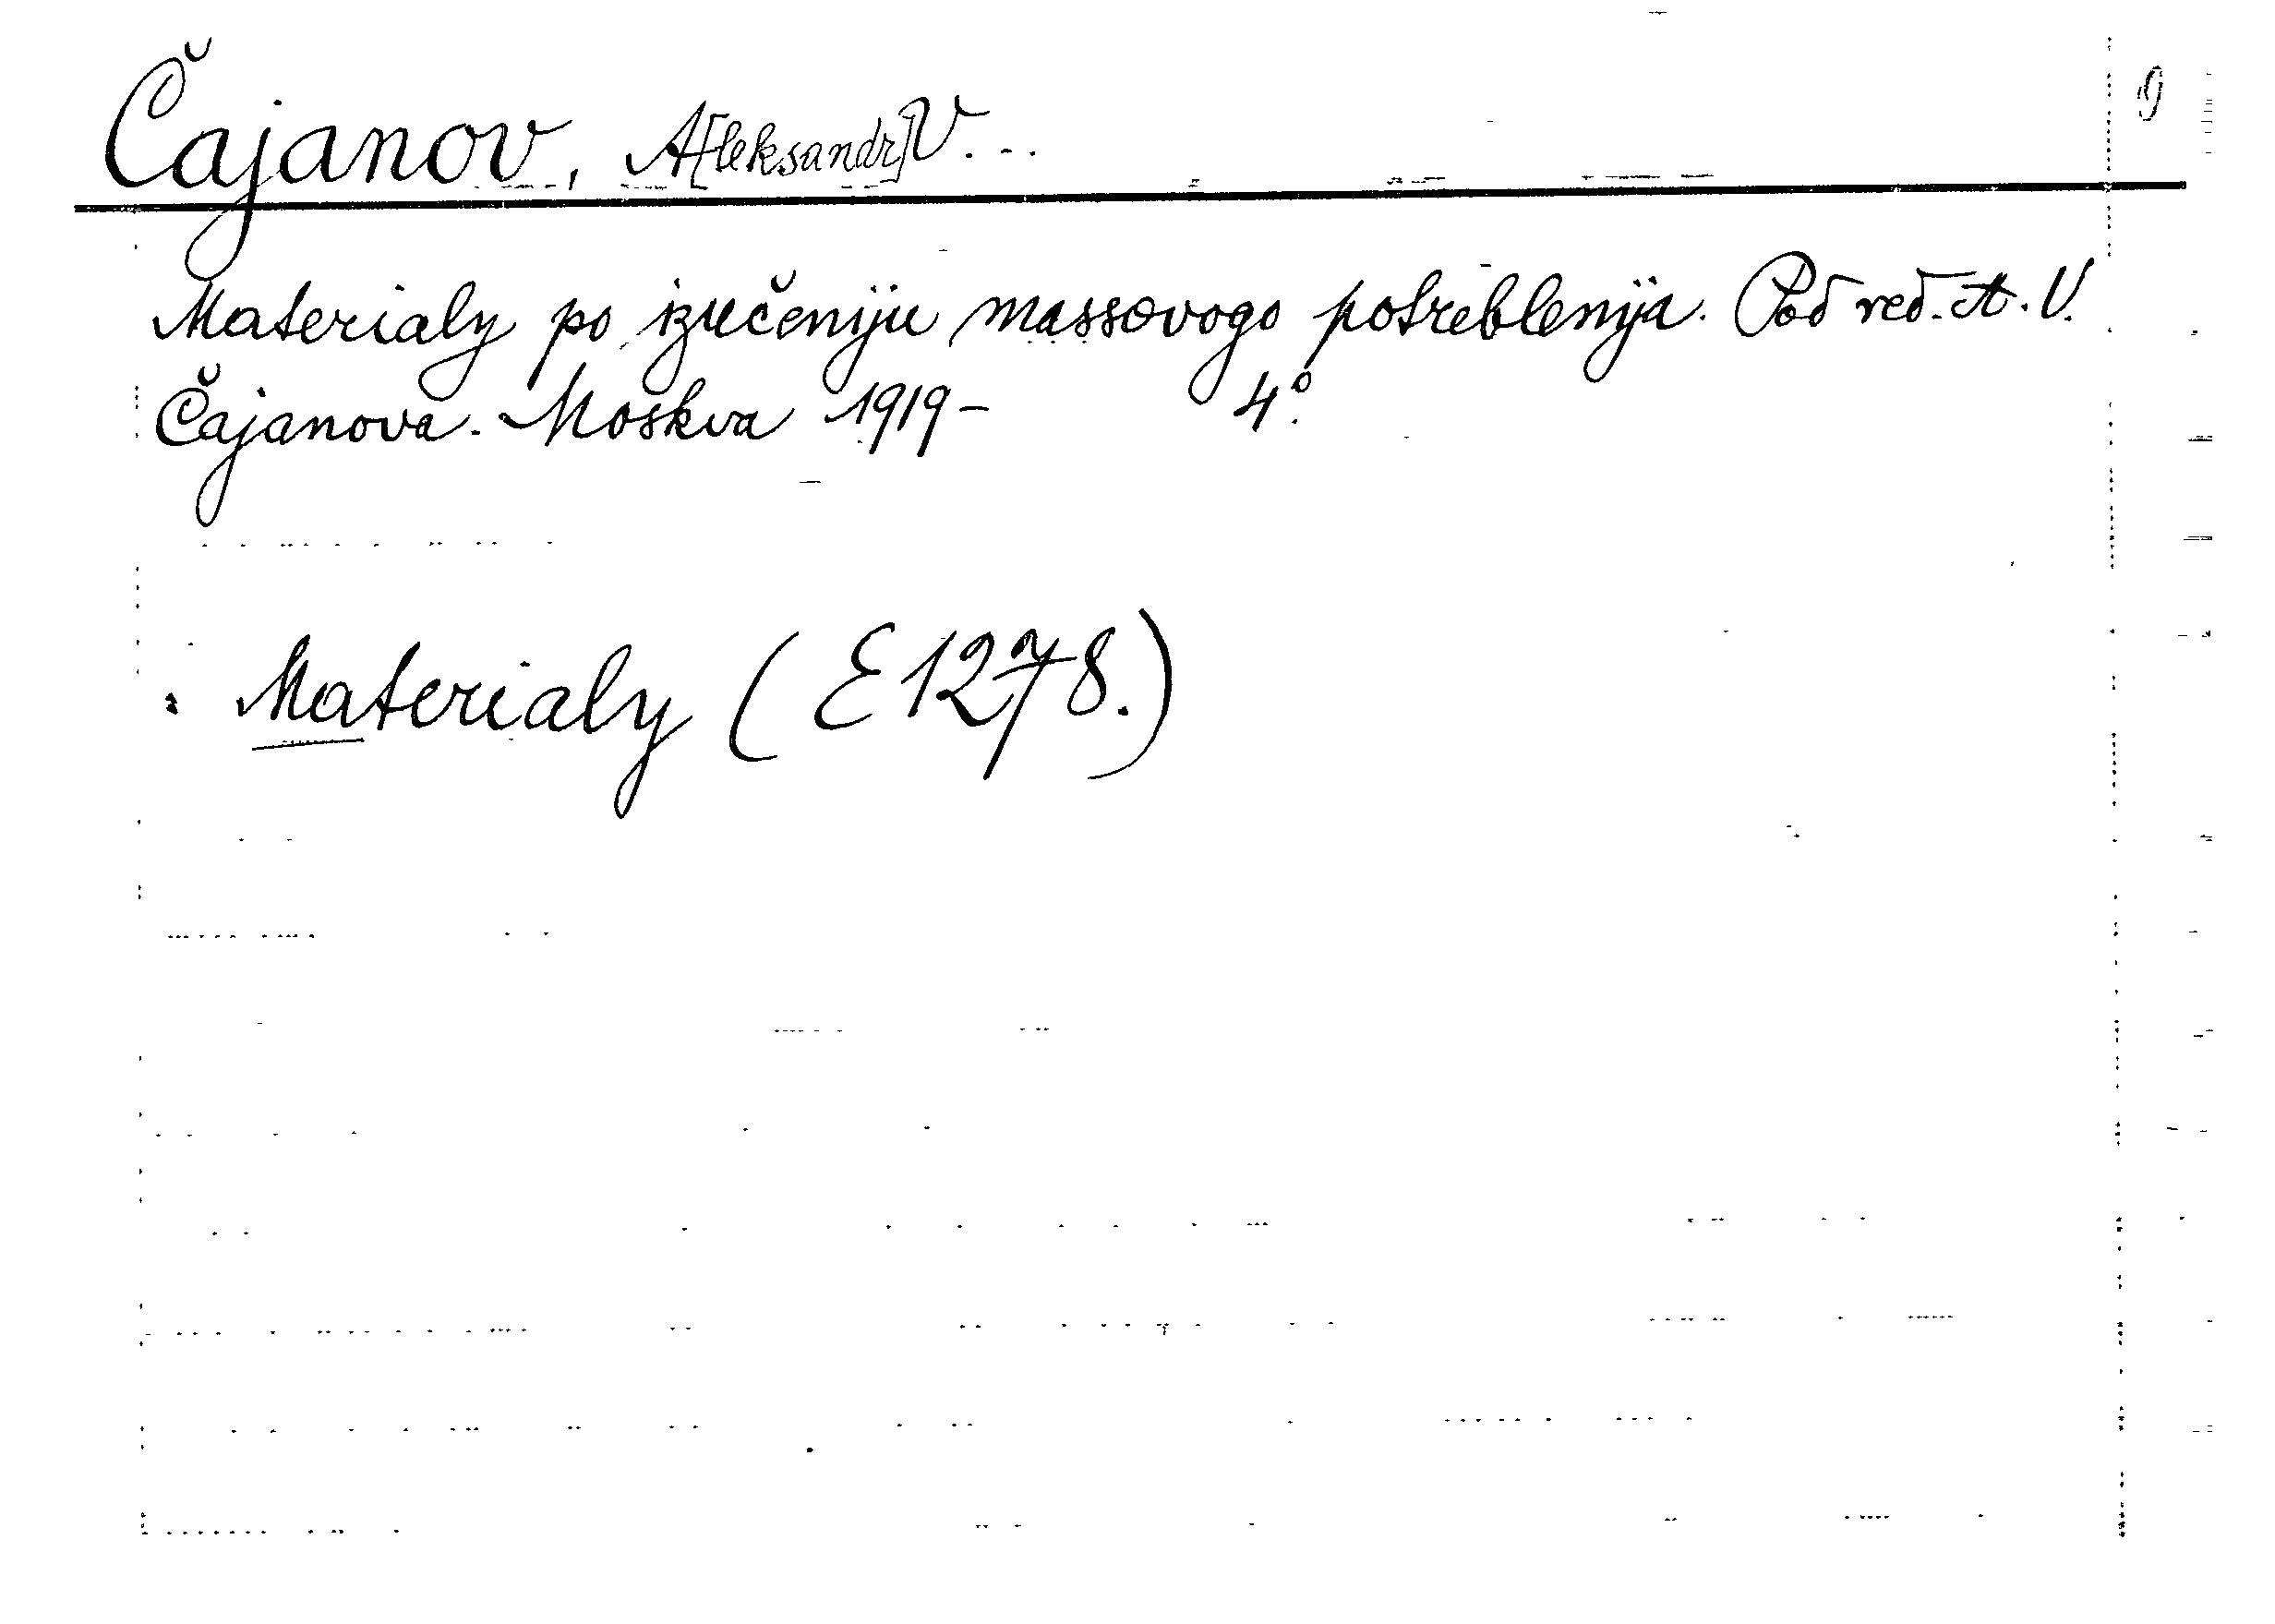 Čajanov, A[leksandr] V...
Materialy po izučeniju massovogo potreblenija. Pod red. A. V.
Čajanova. Moskva 1919- 4°.
: Materialy (E 1278.)